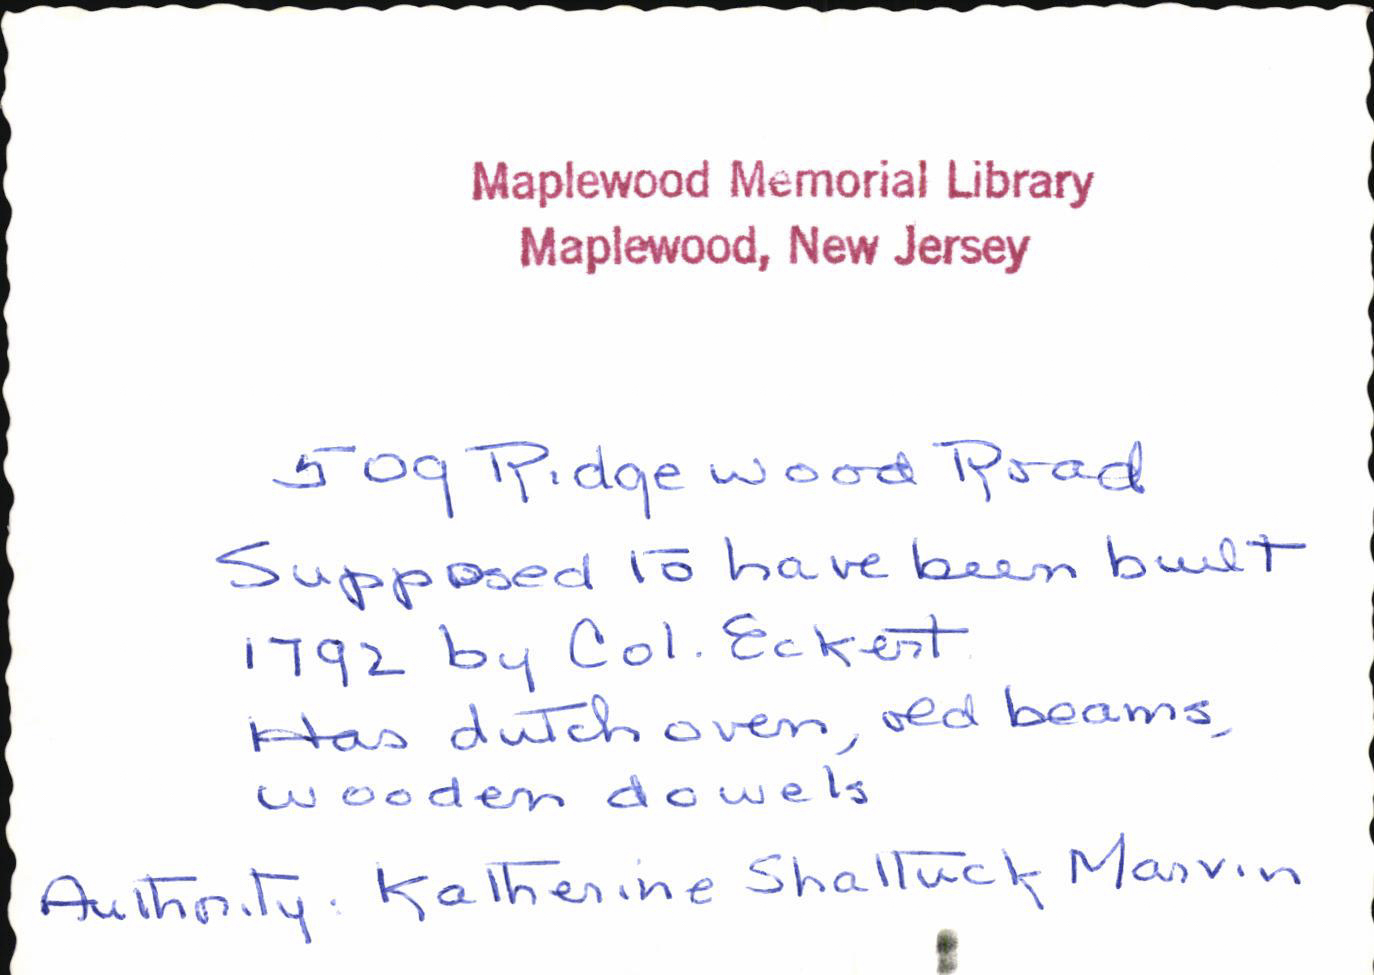 Maplewood Memorial Library
Maplewood, New Jersey
509 Ridgewood Road
Supposed to have been built
1792 by Col. Eckert
Has dutch oven, old beams,
wooden dowels
Authority: Katherine Shattuck Marvin